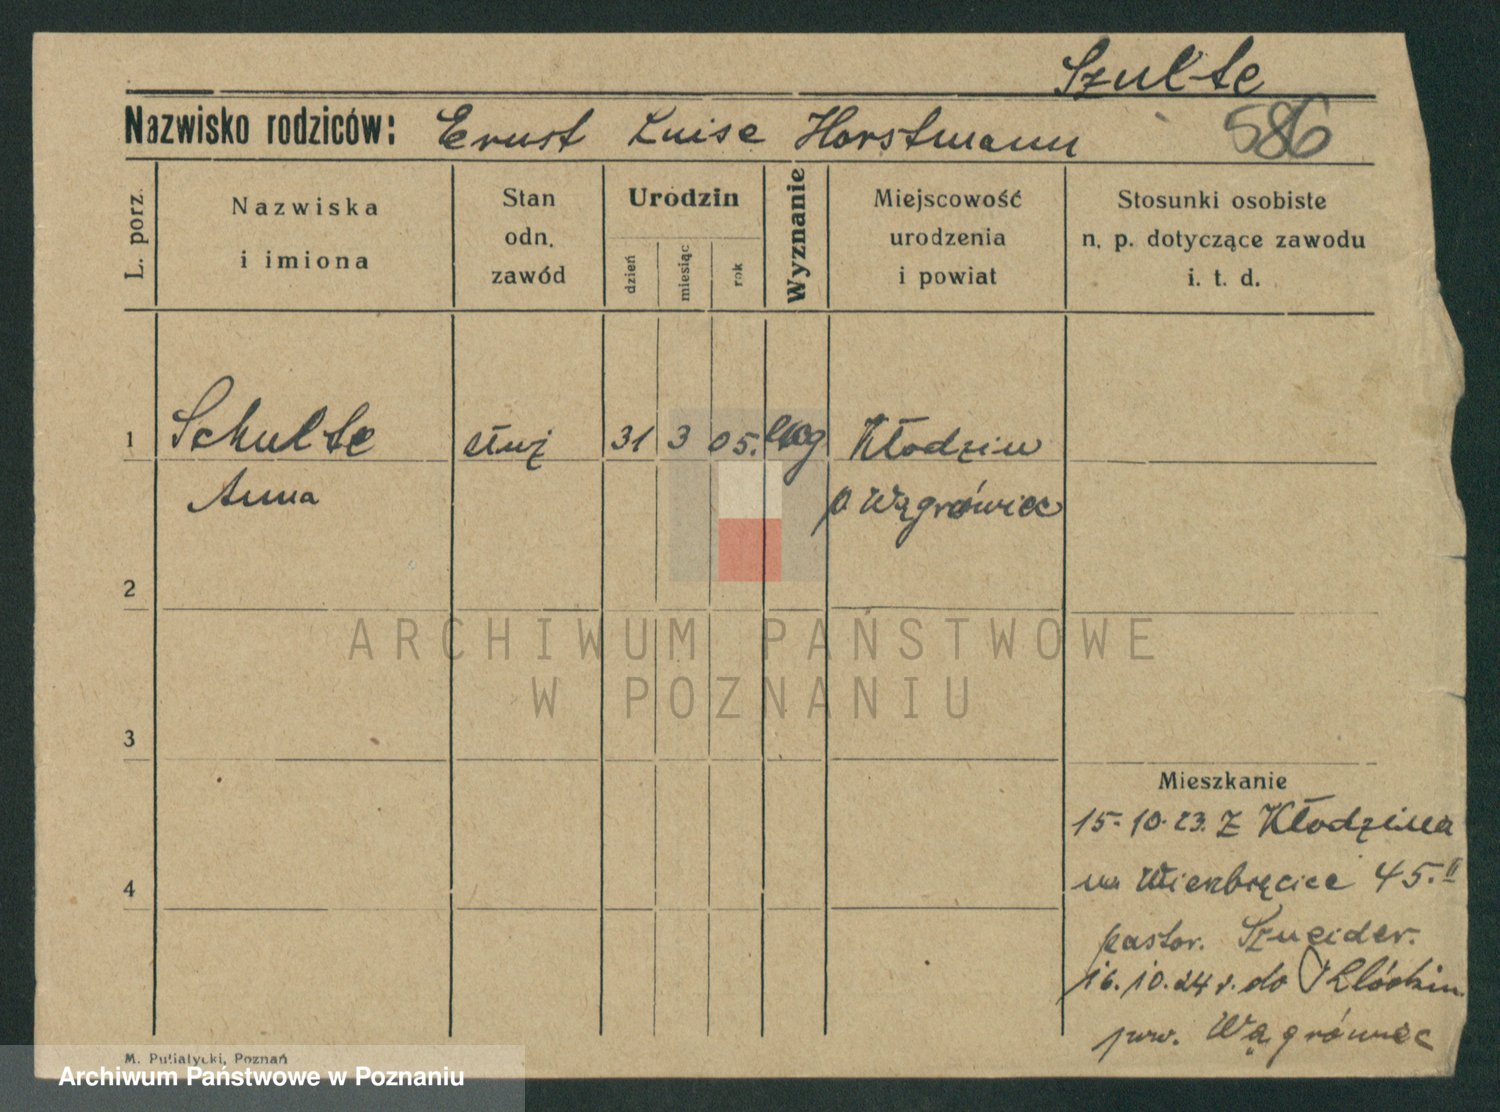 Szulte
Nazwisko rodziców: Ernst Luise Horstmann 586
L. porz.
Nazwiska
i imiona
Stan
odn.
zawód
Urodzin
dzień
miesiąc
rok
Wyznanie
Miejscowość
urodzenia
i powiat
Stosunki osobiste
n. p. dotyczące zawodu
i. t. d.
1 Schulte służ 31 3 05. ewg Kłodzin
Anna p Wągrówiec
2
ARCHIWUM PAŃSTWOWE
W POZNANIU
3
Mieszkanie
15-10-23. Z Kłodzina
4
na Wierzbięcice 45.II
pastor. Szneider.
16.10.24 r. do Kłódzin
pow. Wągrówiec
M. Putiatycki, Poznań
Archiwum Państwowe w Poznaniu